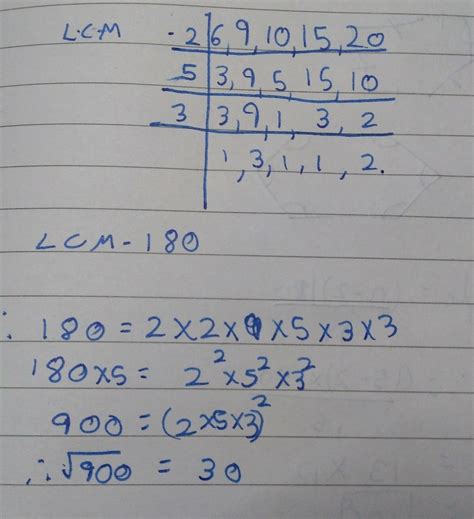 L.C.M -2 | 6, 9, 10, 15, 20
5 | 3, 9, 5, 15, 10
3 | 3, 9, 1, 3, 2
1, 3, 1, 1, 2.
LCM - 180
∴ 180 = 2×2× ×5×3×3
180×5 = 2²×5²×3²
900 = (2×5×3)²
∴ √900 = 30